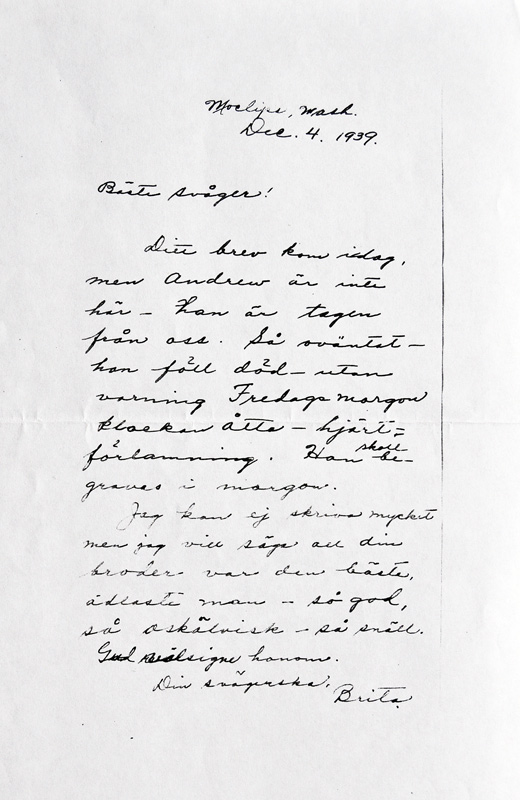 Moclips, Wash.
Dec. 4. 1939.
Bäste svåger!
Ditt brev kom idag,
men Andrew är inte
här – han är tagen
från oss. Så oväntat –
han föll död – utan
varning Fredags morgon
klockan åtta – hjärt=
förlamning. Han skall be-
gravas i morgon.
Jag kan ej skriva mycket
men jag vill säga att din
broder var den bäste,
ädlaste man – så god,
så osjälvisk – så snäll.
Gud välsigne honom.
Din svägerska,
Brita.